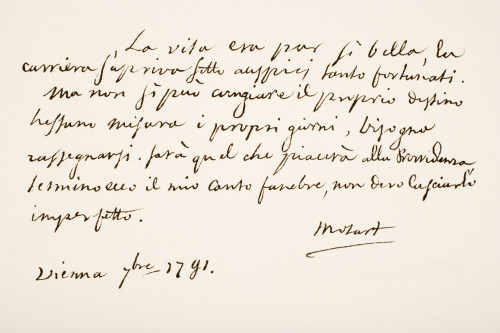 , La vita era pur sì bella, la
carriera s'apriva sotto auspici tanto fortunati.
Ma non si può cangiare il proprio destino
Nessuno misura i propri giorni, bisogna
rassegnarsi. sarà quel che piacerà alla Providenza
termino ecco il mio canto funebre, non devo lasciarlo
imperfetto.
Mozart
Vienna 7bre 1791.